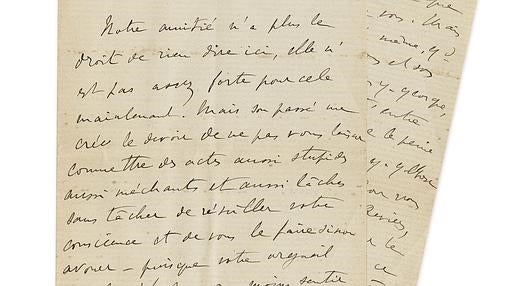 Notre amitié n'a plus le
droit de rien dire ici, elle n'
est pas assez forte pour cela
maintenant. Mais son passé me
crée le devoir de ne pas vous laisser
commettre des actes aussi stupides
aussi méchants et aussi lâches
sans tâcher de réveiller votre
conscience et de vous le faire sinon
avouer – puisque votre orgueil
moins sentir
que
vous. Mais
même, y-
et son
entre
le peine
y-y
vous
le
ce